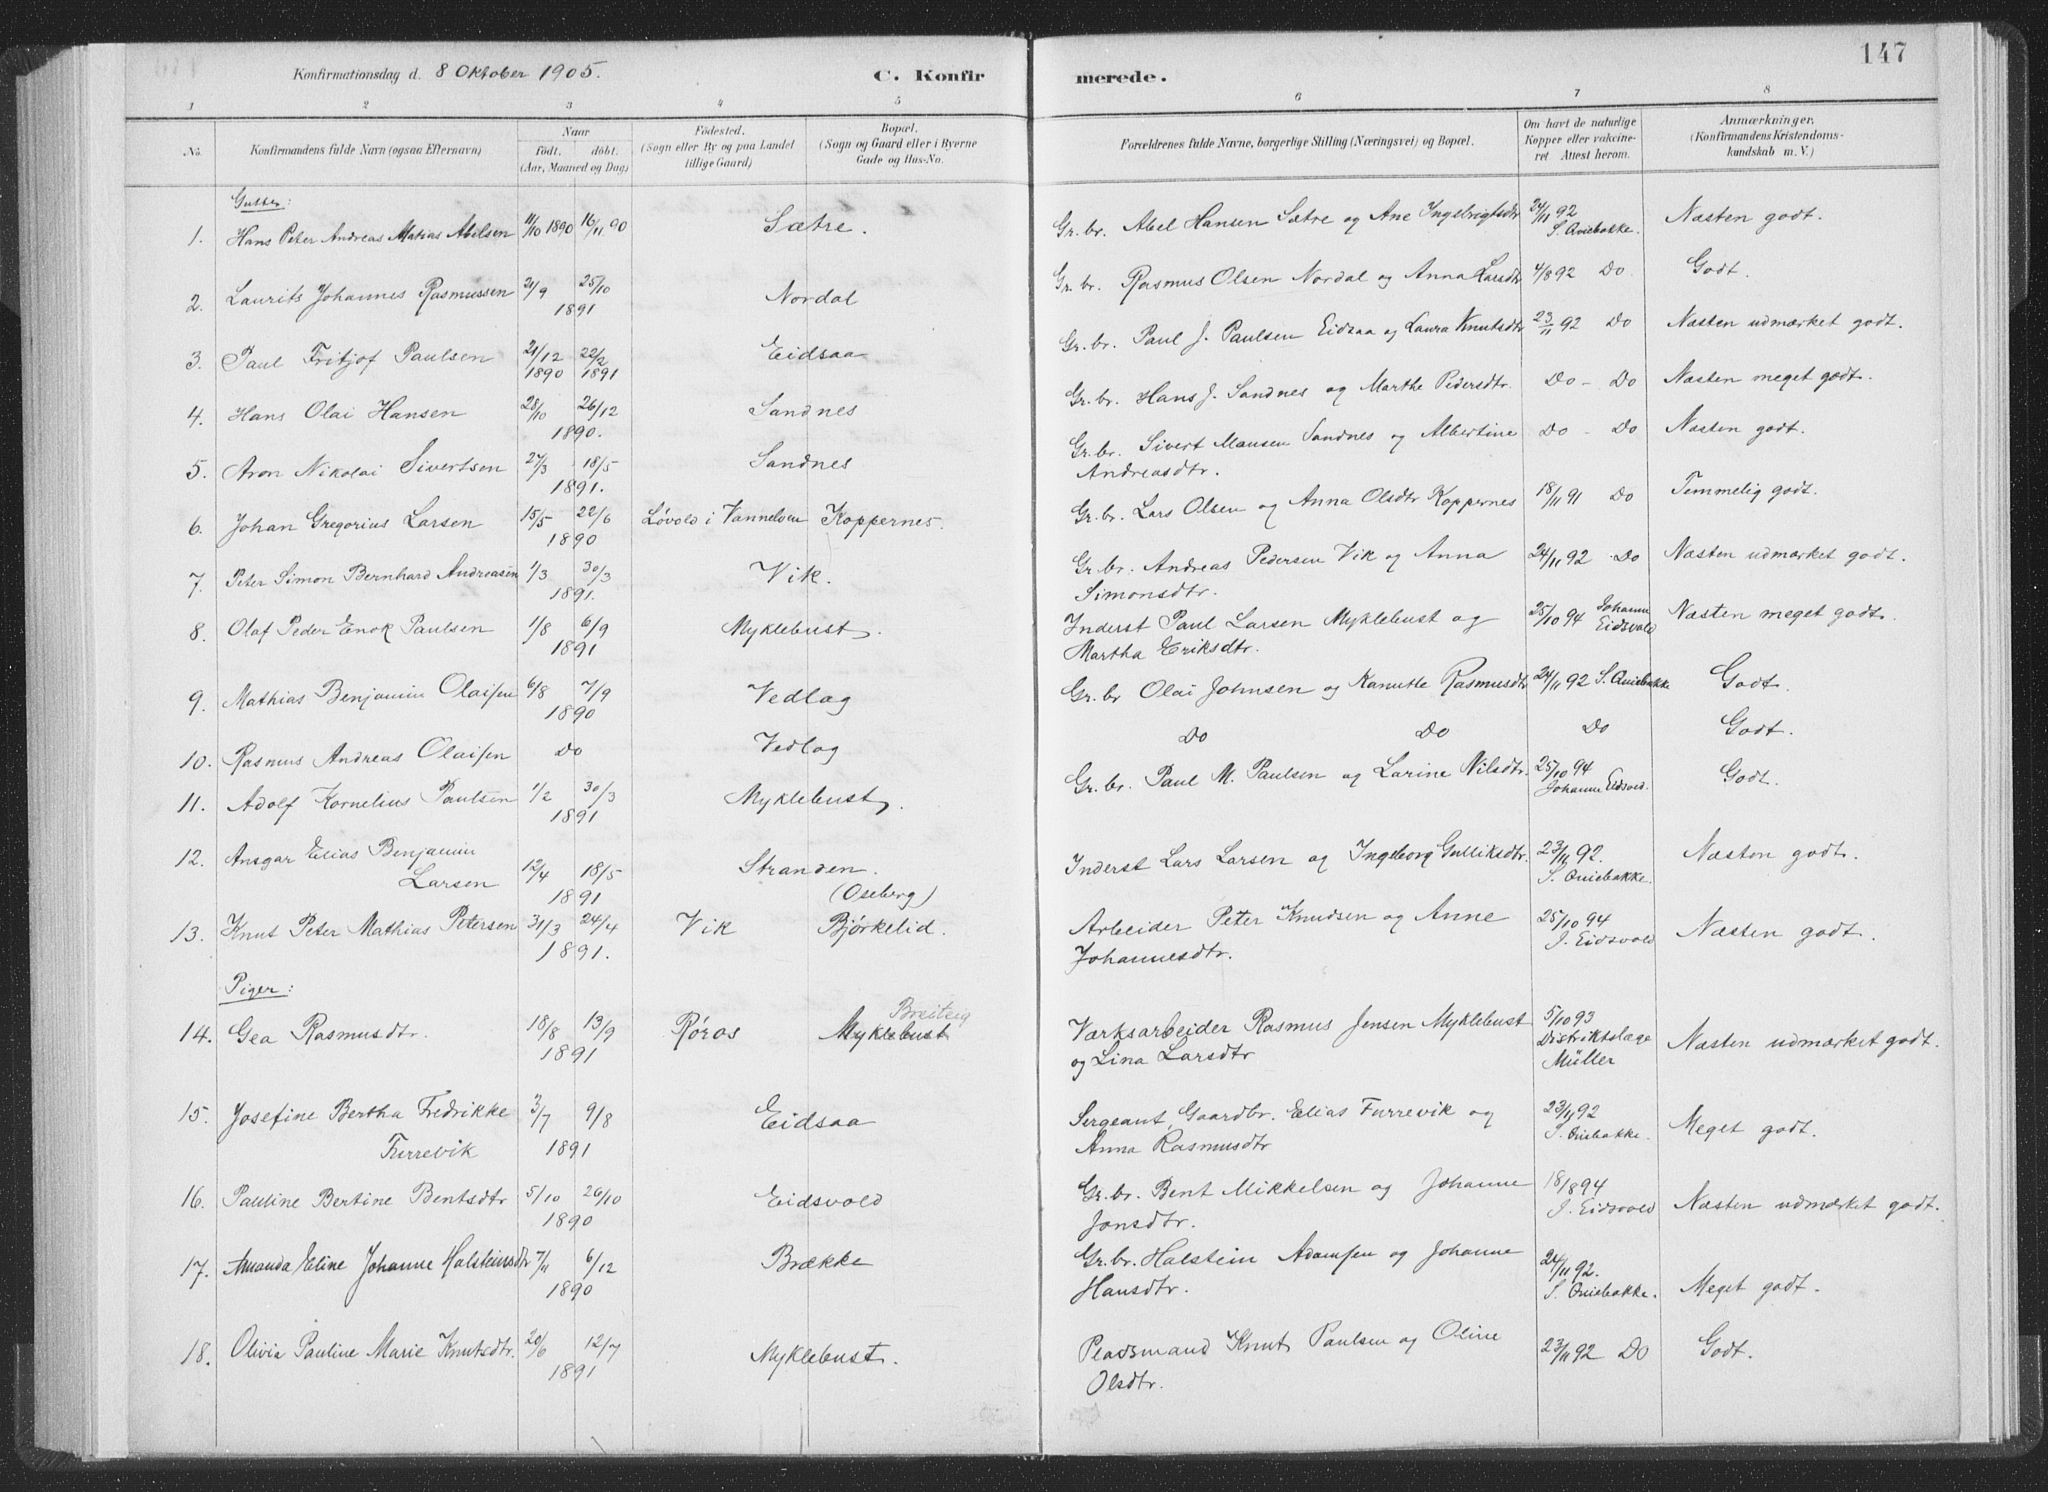 147
Konfirmationsdag d. 8 Oktober 1905. C. Konfirmerede.
1 2 3 4 5 6 7 8
No. Konfirmandens fulde Navn (ogsaa Efternavn) Naar født. døbt. (Aar, Maaned og Dag) Fødested. (Sogn eller By og paa Landet tillige Gaard) Bopæl. (Sogn og Gaard eller i Byerne Gade og Hus-No. Forældrenes fulde Navne, borgerlige Stilling (Næringsvei) og Bopæl. Om havt de naturlige Kopper eller vakcineret Attest herom. Anmærkninger. (Konfirmandens Kristendomskundskab m. V.)
Gutter:
1. Hans Peter Andreas Matias Abelsen 11/10 1890 16/11 90 Sætre. Gr. br. Abel Hansen Sætre og Ane Ingebrigtsdtr 24/11 92 S. Aviebakke. Næsten godt.
2. Laurits Johannes Rasmussen 21/9 25/10 1891 Nordal Gr. br. Rasmus Olsen Nordal og Anna Larsdtr 4/8 92 Do Godt.
3. Paul Fritjof Paulsen 21/12 1890 22/2 1891 Eidsaa Gr. br. Paul J. Paulsen Eidsaa og Laura Knutsdtr 23/11 92 Do Næsten udmærket godt.
4. Hans Olai Hansen 28/10 26/12 1890. Sandnes Gr. br. Hans J. Sandnes og Marthe Pedersdtr. Do - Do Næsten meget godt.
5. Aron Nikolai Sivertsen 27/3 18/5 1891. Sandnes Gr. br. Sivert Monsen Sandnes og Albertine Do - Do Næsten godt.
Andreasdtr.
6. Johan Gregorius Larsen 15/5 22/6 1890 Løvold i Vannelven Koppernes. Gr. br. Lars Olsen og Anna Olsdtr Koppernes 18/11 91 Do Temmelig godt.
7. Peter Simon Bernhard Andreasen 1/3 30/3 1891. Vik. Gr. br. Andreas Pedersen Vik og Anna 24/11 92 Do Næsten udmærket godt.
Simonsdtr.
8. Olaf Peder Enok Paulsen 1/8 6/9 1891 Myklebust. Inderst Paul Larsen Myklebust og 25/10 94 Johanne Eidsvold Næsten meget godt.
Martha Eriksdtr.
9. Mathias Benjamin Olaisen 6/8 7/9 1890 Vedlog Gr. br Olai Johnsen og Kanutte Rasmusdtr 24/11 92 Godt.
10. Rasmus Andreas Olaisen Do Vedlog Do Do Do Godt.
11. Adolf Kornelius Paulsen 1/2 30/3 1891 Myklebust. Gr. br. Paul M. Paulsen og Larine Nilsdtr. 25/10 94 Johanne Eidsvold. Godt.
12. Ansgar Elias Benjamin
Larsen 12/4 18/5 1891 Stranden. (Oseberg) Inderst Lars Larsen og Ingeborg Gulliksdtr. 23/11 92. Næsten godt.
13. Knut Peter Mathias Petersen 31/3 24/4 1891. Vik Bjørkelid. Arbeider Peter Knudsen og Anne 25/10 94 J. Eidsvold Næsten godt.
Johannesdtr.
Piger:
14. Gea Rasmusdtr. 18/8 13/9 1891 Røros Breiteig Myklebust Værksarbeider Rasmus Jensen Myklebust 5/10 93 Distriktslæge Müller Næsten udmærket godt.
og Lina Larsdtr
15. Josefine Bertha Fredrikke
Furrevik 3/7 9/8 1891 Eidsaa Sergeant, Gaardbr. Elias Furrevik og 23/11 92 Meget godt.
Anna Rasmusdtr
16. Pauline Bertine Bentsdtr 5/10 26/10 1890 Eidsvold Gr. br. Bent Mikkelsen og Johanne 18/8 94 J. Eidsvold Næsten udmærket godt.
Jonsdtr.
17. Amanda Eline Johanne Halsteinsdtr 7/11 6/12 1890 Brække Gr. br. Halstein Adamsen og Johanne 24/11 92. Meget godt.
Hansdtr.
18. Olivia Pauline Marie Knutsdtr. 20/6 12/7 1891 Myklebust. Pladsmand Knut Paulsen og Oline 23/11 92 Do Godt.
Olsdtr.